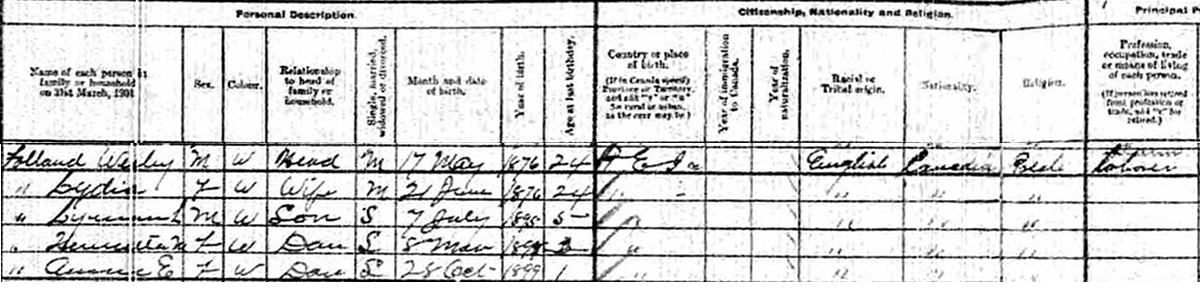 Personal Description. Citizenship, Nationality and Religion. Principal
Name of each person in family or household on 31st March, 1901 Sex. Colour. Relationship to head of family or household. Single, married, widowed or divorced. Month and date of birth. Year of birth. Age at last birthday. Country or place of birth. (If in Canada specify Province or Territory and add "r" or "u" for rural or urban, as the case may be.) Year of immigration to Canada. Year of naturalization. Racial or Tribal origin. Nationality. Religion. Profession, occupation, trade or means of living of each person. (If person has retired from profession or trade, add "r" for retired.)
Folland Wesley M W Head M 17 May 1876 24 P E I r English Canadian
" Lydia F W Wife M 21 June 1876 24 " " " "
" M W Son S 7 July 1895 5 " " " "
" F W Dau S 8 " " " "
" Annie E F W Dau S 28 Oct 1899 1 " " " "